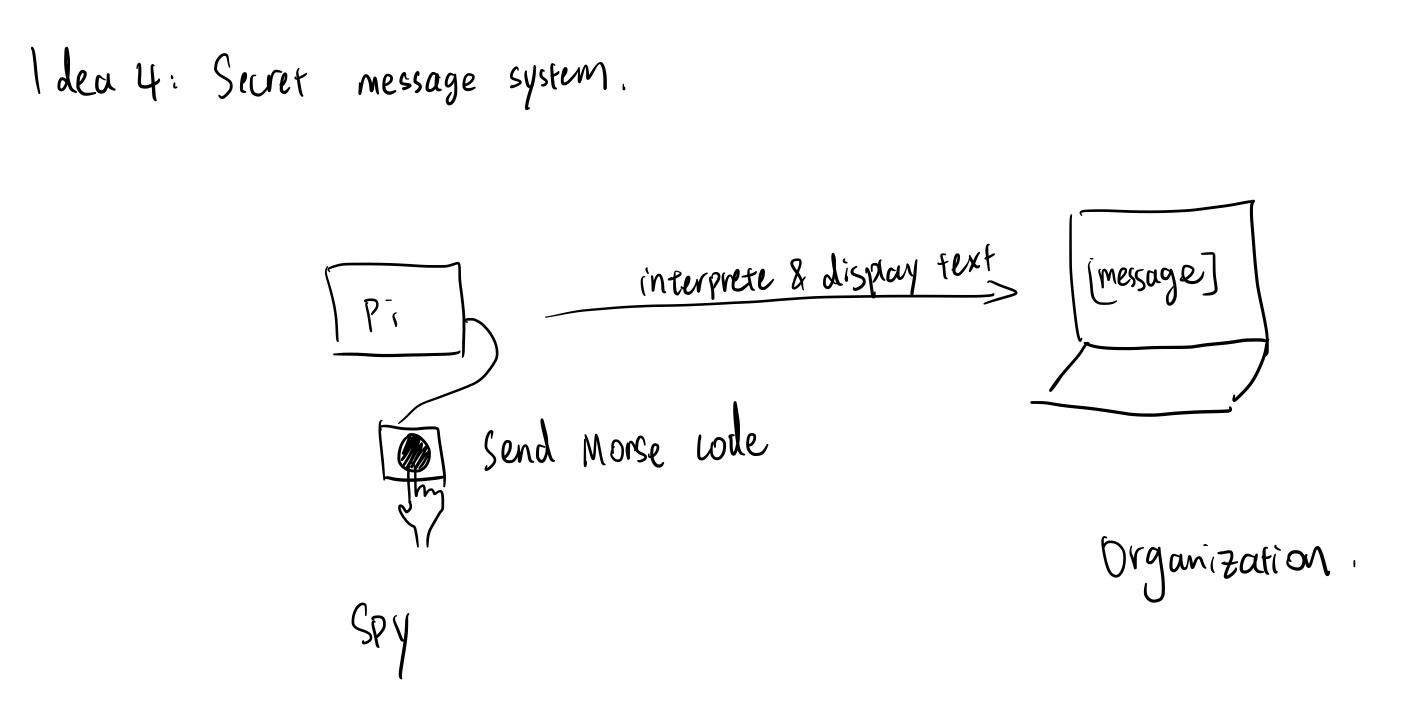 Idea 4: Secret message system.
Pi
interprete & display text
[message]
Send Morse code
Spy
Organization.